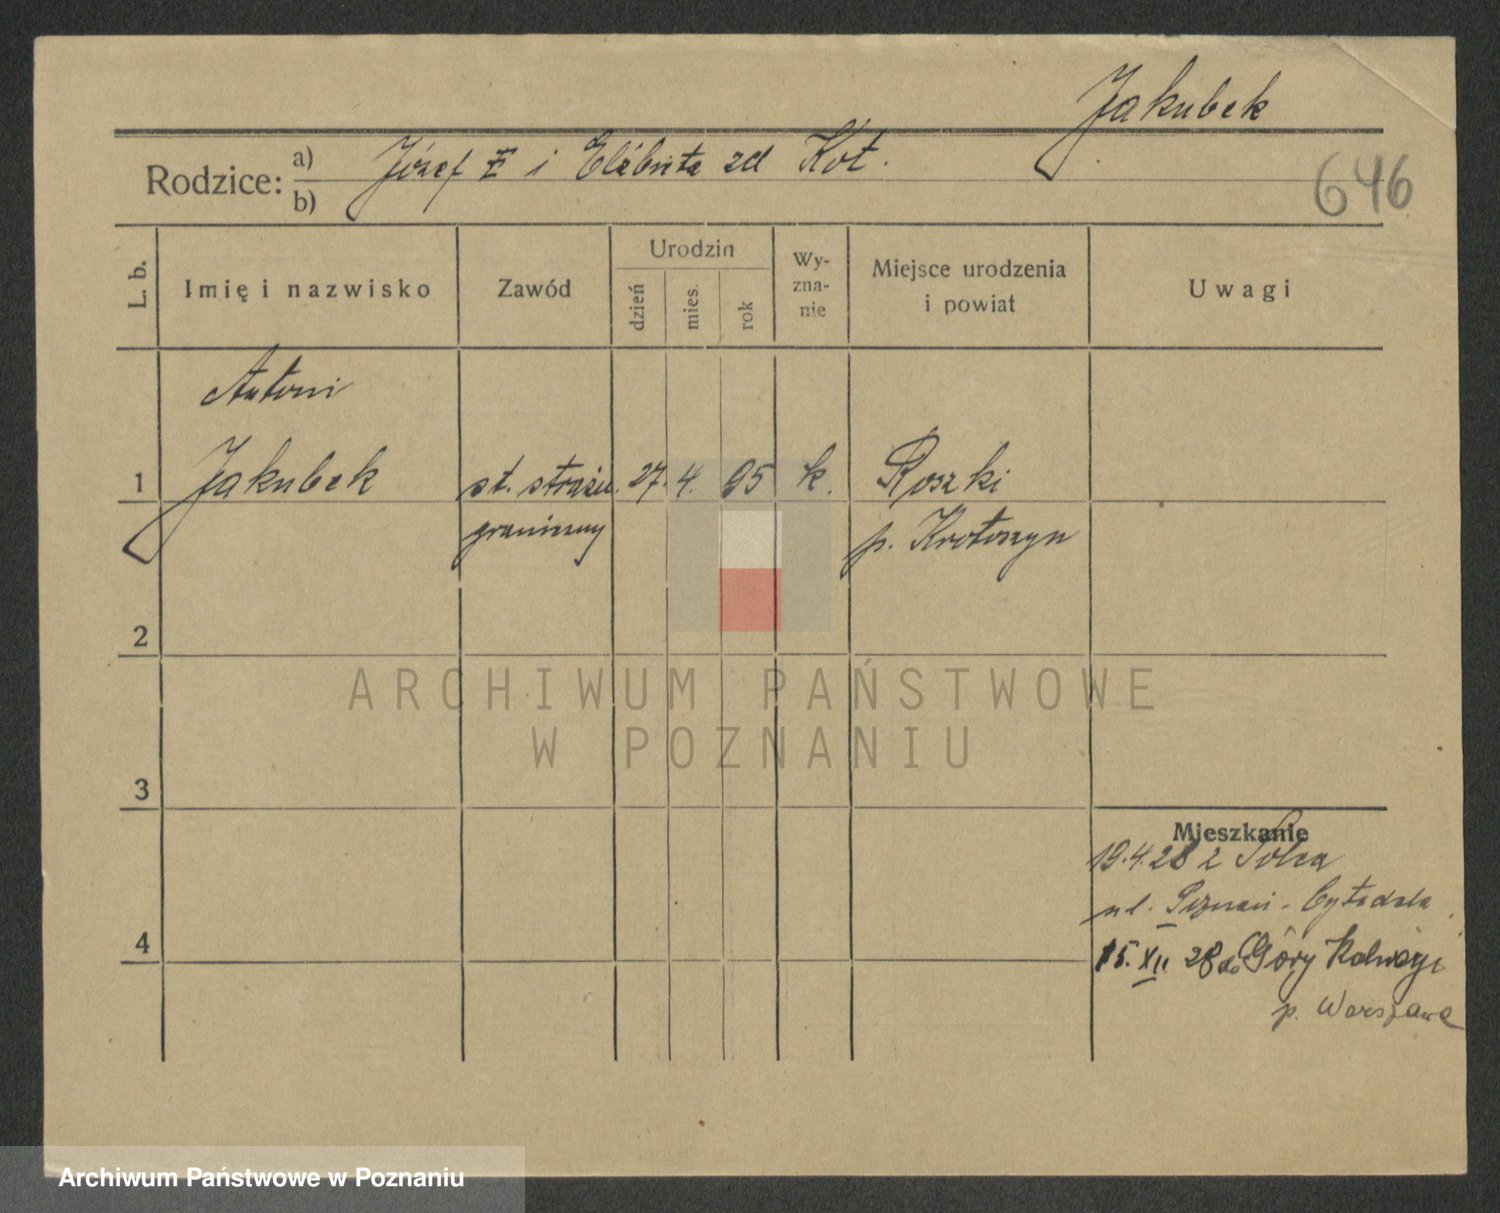 Jakubek
Rodzice: a) Józef i Elżbieta zd Kot.
b)
646
L. b.
Imię i nazwisko
Zawód
Urodzin
dzień
mies.
rok
Wy-
zna-
nie
Miejsce urodzenia
i powiat
Uwagi
Antoni
1 Jakubek st. strażn. 27. 4. 95 k. Roszki
graniczny p. Krotoszyn
2
ARCHIWUM PAŃSTWOWE
W POZNANIU
3
Mieszkanie
19.4.28 z
ul. Poznań - Cytadela
4
15. XII 28 do Góry Kalwarji
p. Warszawa
Archiwum Państwowe w Poznaniu